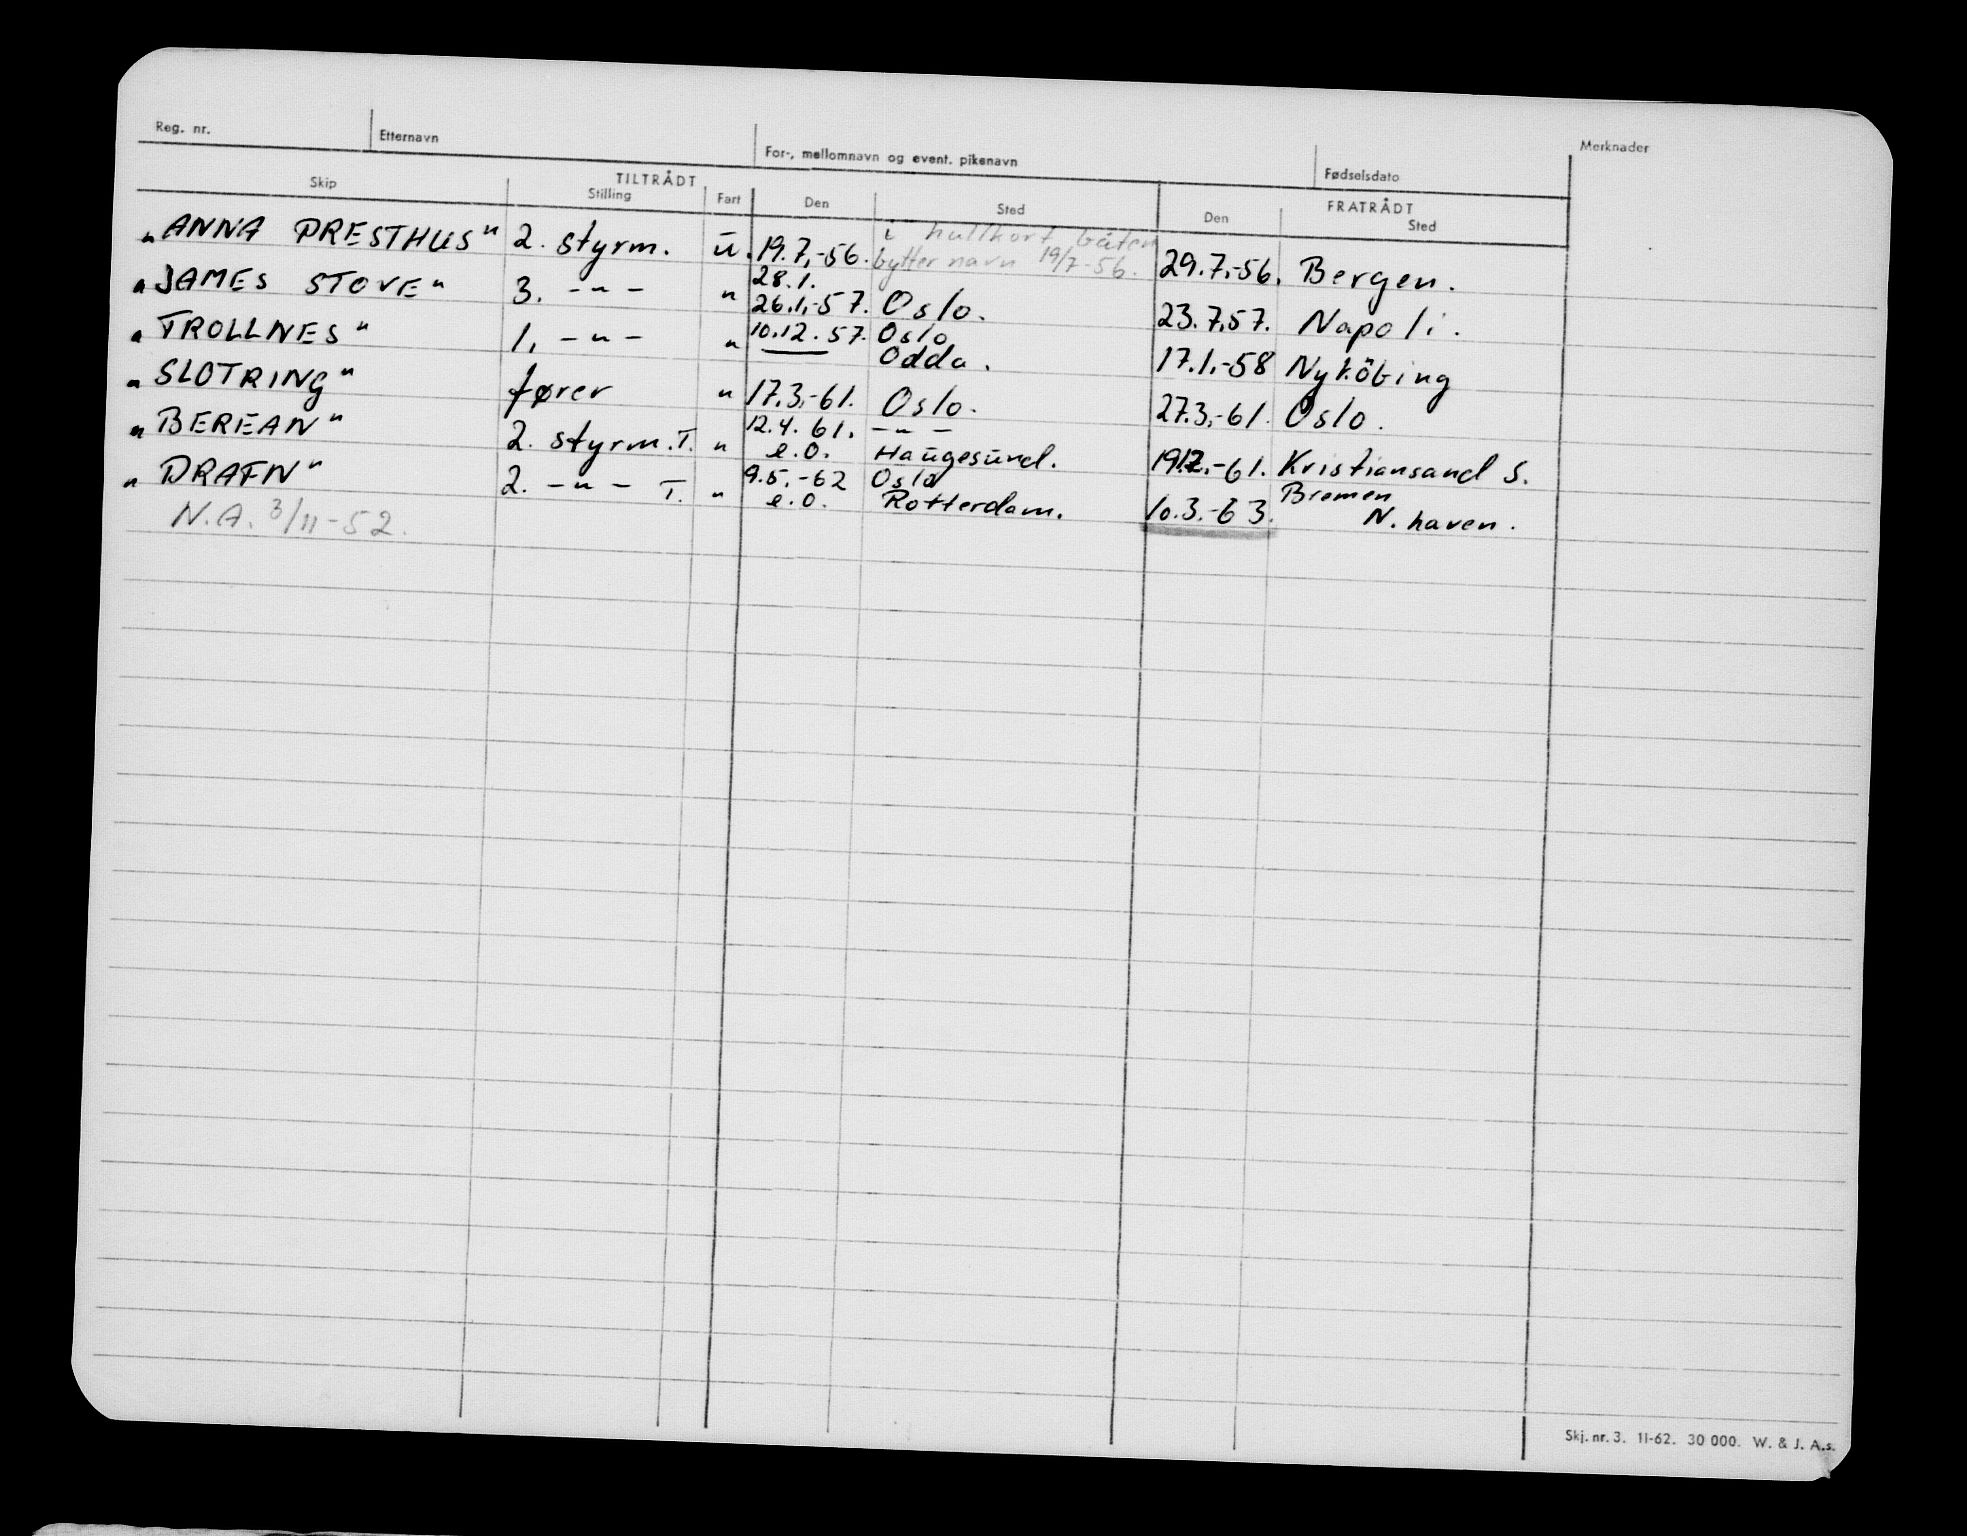 Reg. nr. Etternavn For-, mellomnavn og event. pikenavn Fødselsdato Merknader
TILTRÅDT FRATRÅDT
Skip Stilling Fart Den Sted Den Sted
i hullkort båten
"ANNA PRESTHUS" 2. styrm. u. 19.7.-56. bytter navn 19/7-56. 29.7.-56. Bergen.
28.1.
"JAMES STOVE" 3. -"- " 26.1.-57. Oslo. 23.7.57. Napoli.
10.12.57. Oslo
"TROLLNES" 1. -"- " Odda. 17.1.-58 Nyköbing
"SLOTRING" fører " 17.3.-61. Oslo. 27.3.-61. Oslo.
12.4.61. -"-
"BEREAN" 2. styrm. T. " e.o. Haugesund. 19.12.-61. Kristiansand S.
9.5.-62 Oslo Bremen
"DRAFN" 2. -"- T. " e.o. Rotterdam. 10.3.-63. N. haven.
N.A. 3/11-52.
Skj. nr. 3. 11-62. 30 000. W. & J. A.s.